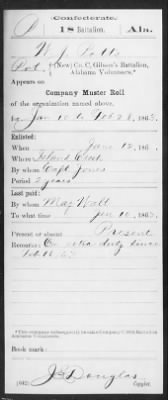 Confederate.
P 18 Battalion. Ala.
W. J. Potts
Pvt. (New) Co. C, Gibson's Battalion,
Alabama Volunteers.*
Company Muster Roll
of the organization named above,
for Jan 10 to Feb 28, 1863.
Enlisted:
When June 12, 186
Where Island Creek
By whom Capt Jones
Period 3 years
Last paid:
By whom Maj Wall
To what time Jan 10, 1863.
Present or absent Present
Remarks: On extra duty since
Feb
Book mark:
J S Douglas
(642) Copyist.